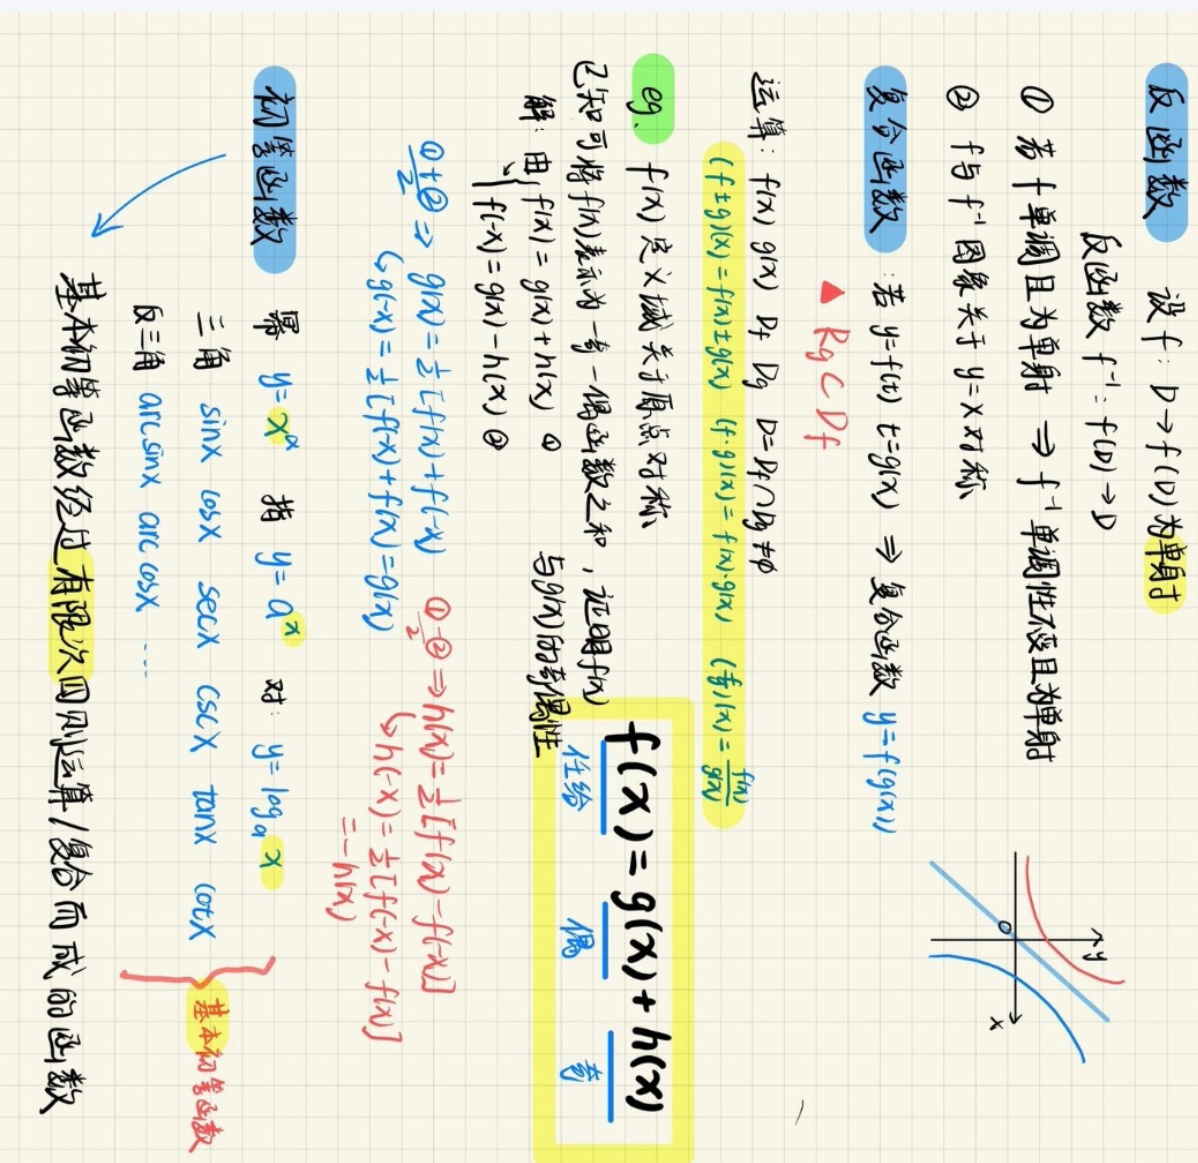 反函数 设 f: D→f(D)为单射
反函数 f⁻¹: f(D)→D
① 若 f 单调且为单射 ⇒ f⁻¹ 单调性不变且为单射
② f与 f⁻¹ 图象关于 y=x 对称
y
O
x
复合函数:若 y=f(t) t=g(x) ⇒ 复合函数 y=f(g(x))
▲ Rg⊂Df
运算: f(x) g(x) Df Dg D=Df∩Dg≠∅
(f±g)(x)=f(x)±g(x) (f·g)(x)=f(x)·g(x) (f/g)(x)=f(x)/g(x)
eg. f(x)定义域关于原点对称
已知可将f(x)表示为一奇一偶函数之和,证明f(x)
与g(x)的奇偶性
解:由{f(x)=g(x)+h(x) ①
f(-x)=g(x)-h(x) ②
f(x)=g(x)+h(x)
任给 偶 奇
①+②/2 ⇒ g(x)=½[f(x)+f(-x)] ①-②/2 ⇒ h(x)=½[f(x)-f(-x)]
↳g(-x)=½[f(-x)+f(x)]=g(x) ↳h(-x)=½[f(-x)-f(x)]
=-h(x)
初等函数 幂 y=xᵅ 指 y=aˣ 对: y=logₐx
三角 sinx cosx secx cscx tanx cotx
反三角 arcsinx arccosx ...
基本初等函数
基本初等函数经过有限次四则运算/复合而成的函数